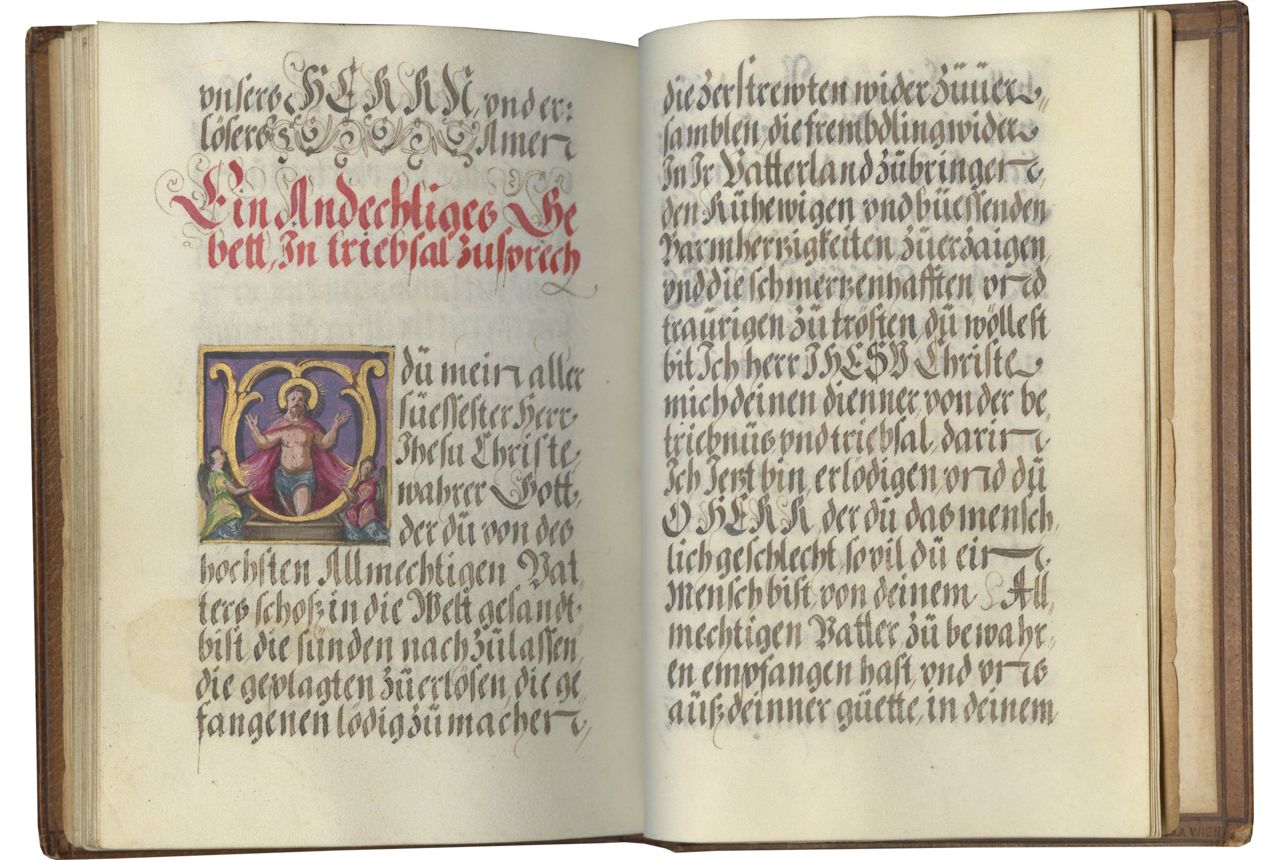 vnsers HERRN, vnd er:
lösers Amen
Ein Andechtiges Ge
bett, In triebsal zusprech
O du mein aller
süessester Herr
Jhesu Christe,
wahrer Gott,
der dü von des
höchsten Allmechtigen Vat,
ters schoß in die Welt gesandt
bist, die sünden nach zülassen,
die geplagten züerlösen, die ge,
fangenen lödig zümachen,
die zerstrewten wider züuer,
samblen, die frembdling wider
In Ir Vatterland zübringen,
den Rühewigen vnd büessenden
Barmhertzigkeiten züerzaigen,
vnd die schmertzenhafften, vnd
traürigen zü trösten, dü wöllest
bit Ich herr IHESV Christe
mich deinen dienner, von der be,
triebnüs vnd triebsal, darin
Ich Jetzt bin, erlödigen, vnd dü
O HERR der dü das mensch,
lich geschlecht, so vil dü ein
Mensch bist, von deinem All,
mechtigen Vatter zü bewahr,
en empfangen hast, vnd vns
aüß deinner güette, in deinem